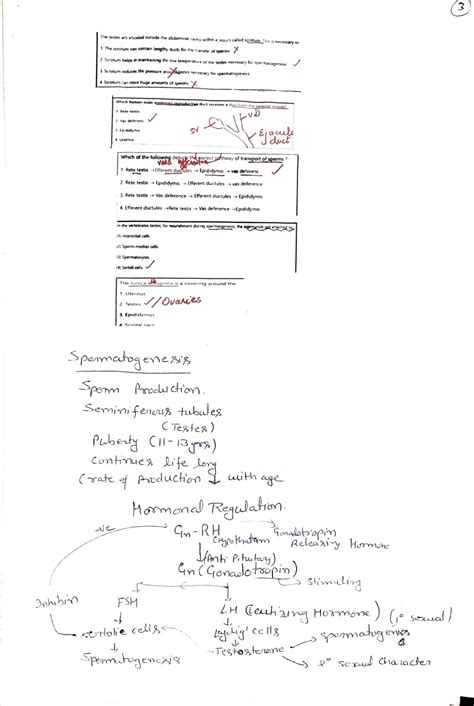 3
The testes are situated outside the abdominal cavity within a pouch called scrotum. This is necessary as
1. The scrotum can contain lengthy ducts for the transfer of sperms X
2. Scrotum helps in maintaining the low temperature of the testes necessary for spermatogenesis ✓
3. Scrotum reduces the pressure around gonads necessary for spermatogenesis
4. Scrotum can store huge amounts of sperms X
Which human male reproductive duct receives a duct from the seminal vesicle?
1. Rete testis
2. Vas deferens ✓
3. Epididymis
4. Urethra
SV
VD
Ejacule
duct
Which of the following depicts the correct pathway of transport of sperms ?
1. Rete testis → Efferent ductules → Epididymis → vas deferens ✓
2. Rete testis → Epididymis → Efferent ductules → vas deference
3. Rete testis → Vas deference → Efferent ductules → Epididymis
4. Efferent ductules → Rete testis → Vas deference → Epididymis
In the vertebrates testes, for nourishment during spermatogenesis, the
(1) Interstitial cells
(2) Sperm mother cells
(3) Spermatocytes
(4) Sertoli cells ✓
The tunica albuginea is a covering around the
1. Uterous
2. Testes ✓ // Ovaries
3. Epididymus
4. Scrotal sacs
Spermatogenesis
Sperm Production.
Seminiferous tubules
(Testes)
Puberty (11-13 yrs)
Continues life long
(rate of Production ↓ with age
Hormonal Regulation.
-ve
Gn-RH
Gonadotropin
Releasing Hormone
(Anti Pitutary)
Gn (Gonadotropin)
Inhibin
FSH
LH
Hormone) (1° sexual)
cells
leydig cells
spermatogenes
Spermatogenesis
Testosterone
1° sexual character